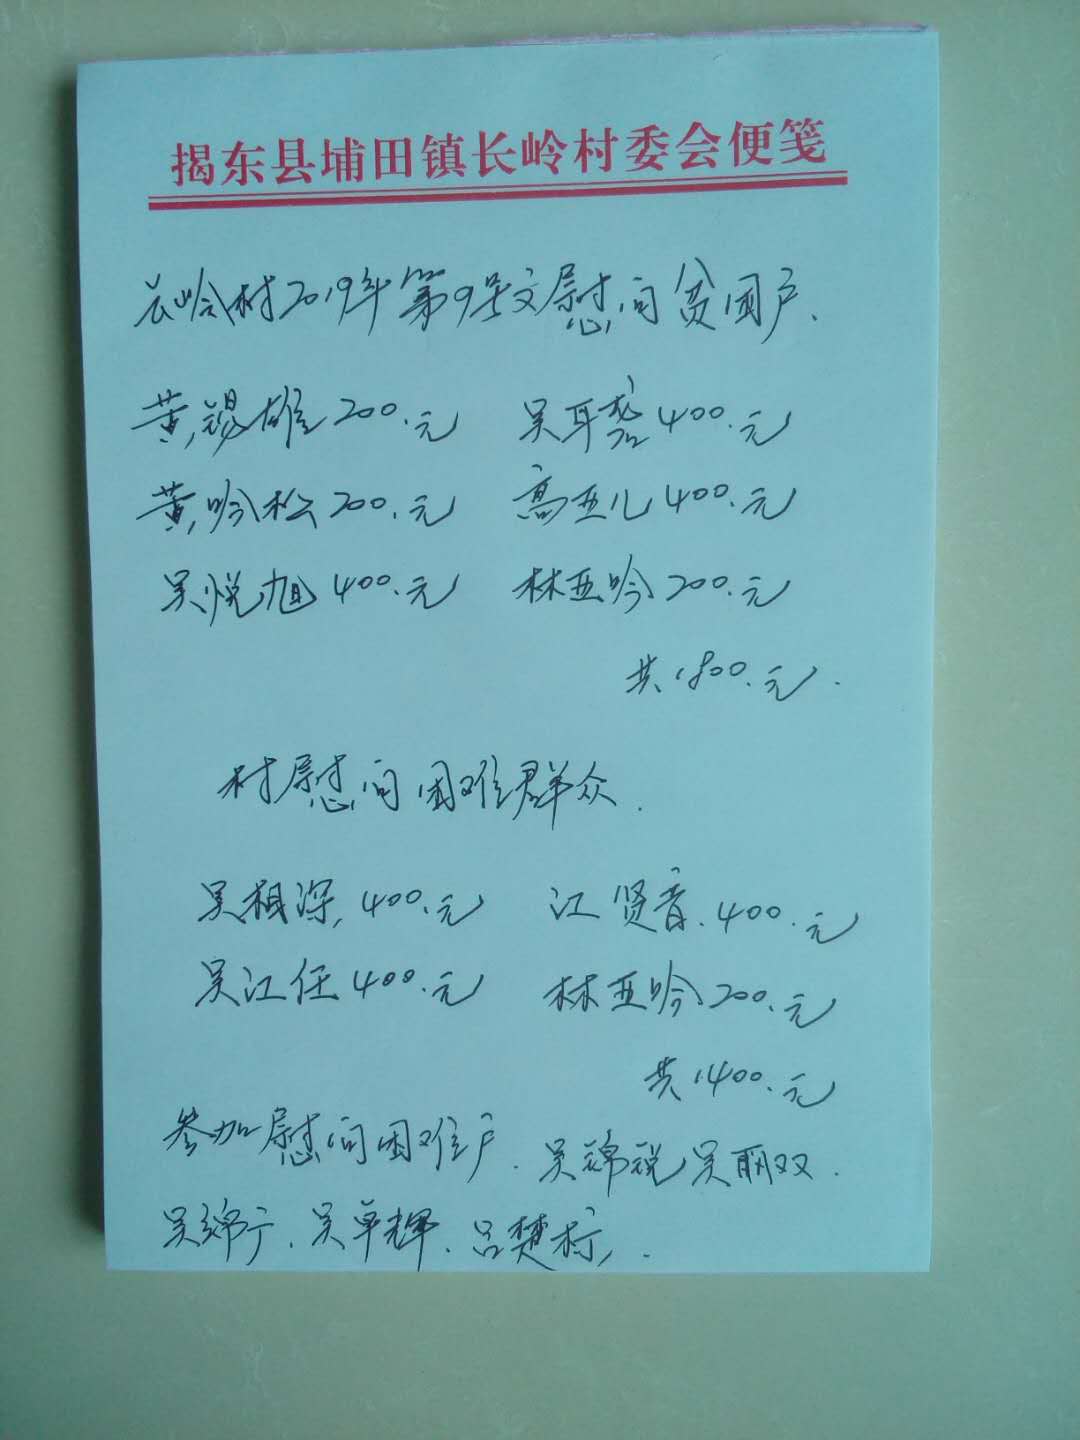 揭东县埔田镇长岭村委会便笺
长岭村2019年第9号文慰问贫困户.
黄锡雄200.元 吴耳 400.元
黄吟松200.元 高亚儿400.元
吴悦旭400.元 林亚吟200.元
共1800.元.
村慰问困难群众.
吴楫深,400.元 江贤音.400.元
吴江任400.元 林亚吟200.元
共1400.元
参加慰问困难户.吴锦锐吴丽双.
吴绵宁.吴单辉.吕楚